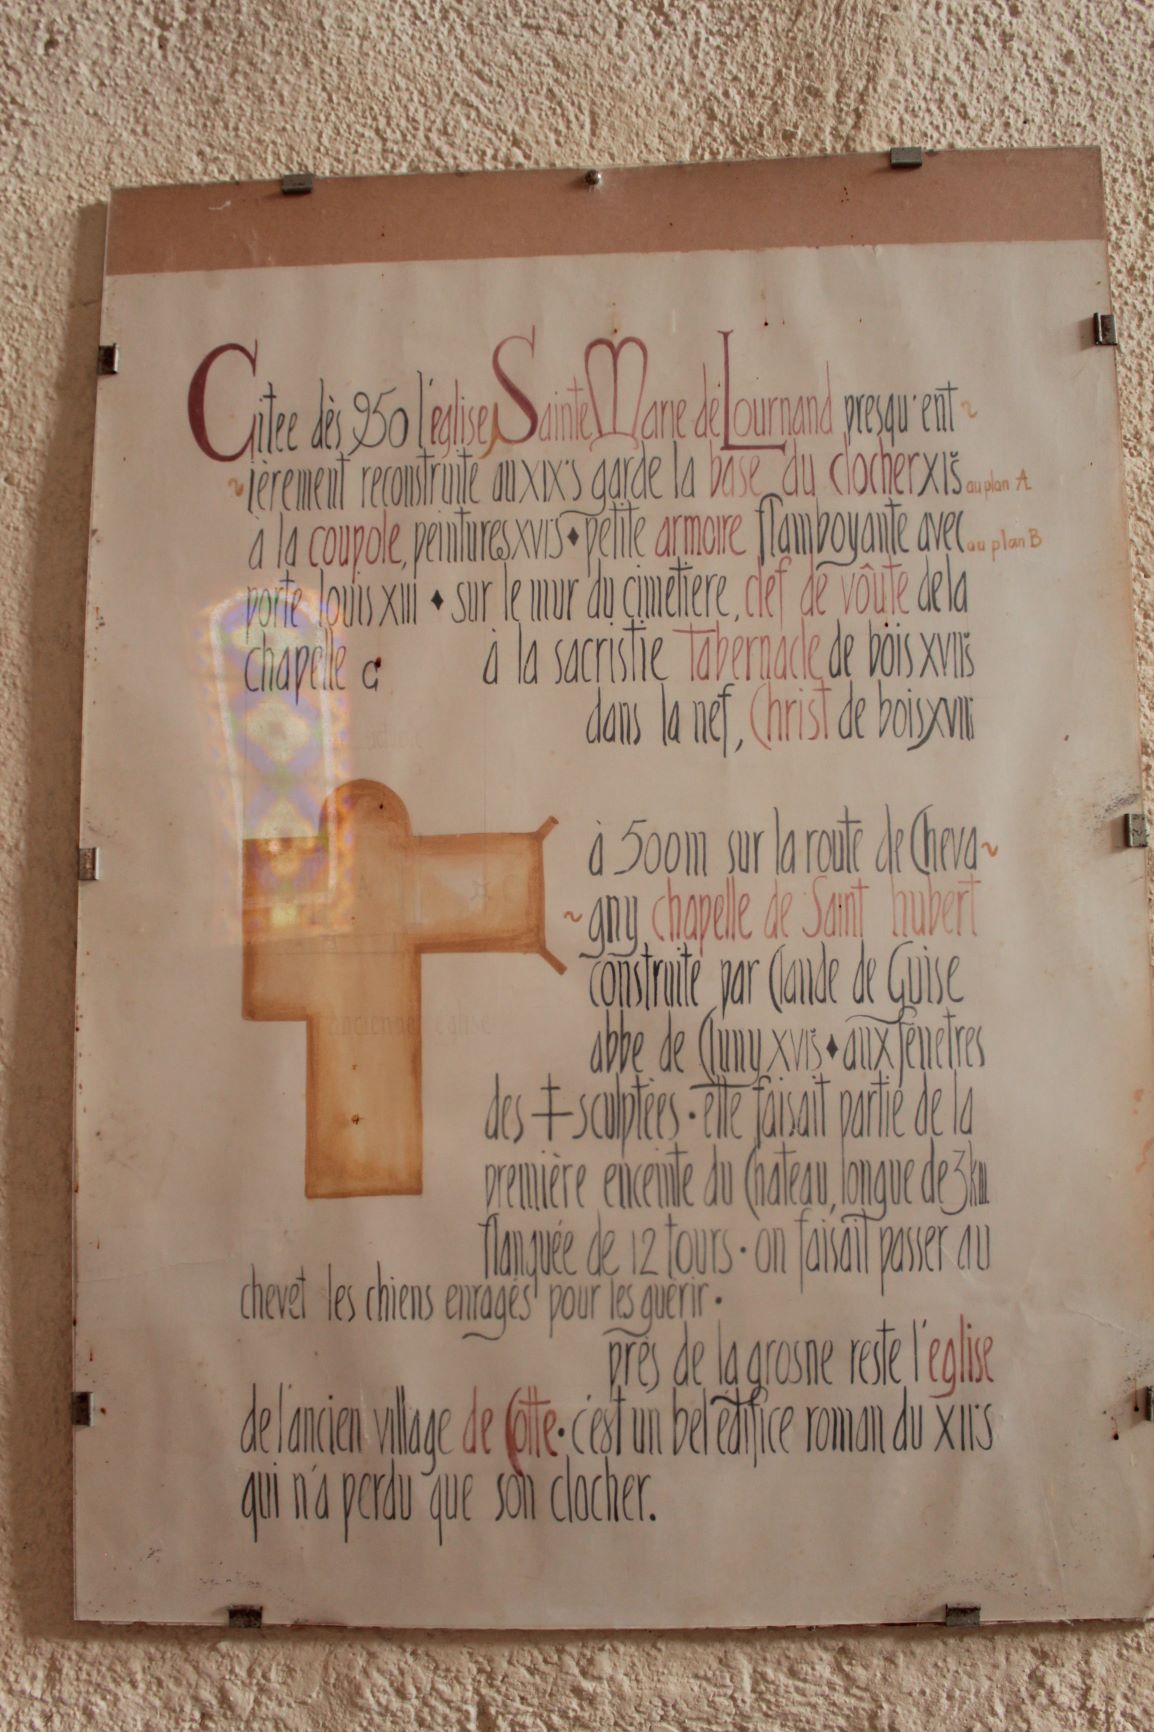 Citee dès 950 l'église Sainte Marie de Lournand presqu'ent~
~ièrement reconstruite au XIX's garde la base du clocher XIs au plan A
à la coupole, peintures XVIs ♦ petite armoire flamboyante avec au plan B
porte louis XIII ♦ sur le mur du cimetiere, clef de vôute de la
chapelle C à la sacristie Tabernacle de bois XVIIs
dans la nef, Christ de bois XVIII
A
C
ancienne église
à 500m sur la route de Cheva~
~gny chapelle de Saint hubert
construite par Claude de Guise
abbe de Cluny XVIs ♦ aux fenetres
des ‡ sculptées · elle faisait partie de la
première enceinte du Chateau, longue de 3km
flanquée de 12 tours · on faisait passer au
chevet les chiens enragés pour les guérir ·
près de la grosne reste l'église
de l'ancien village de Cotte · c'est un bel édifice roman du XII's
qui n'a perdu que son clocher.